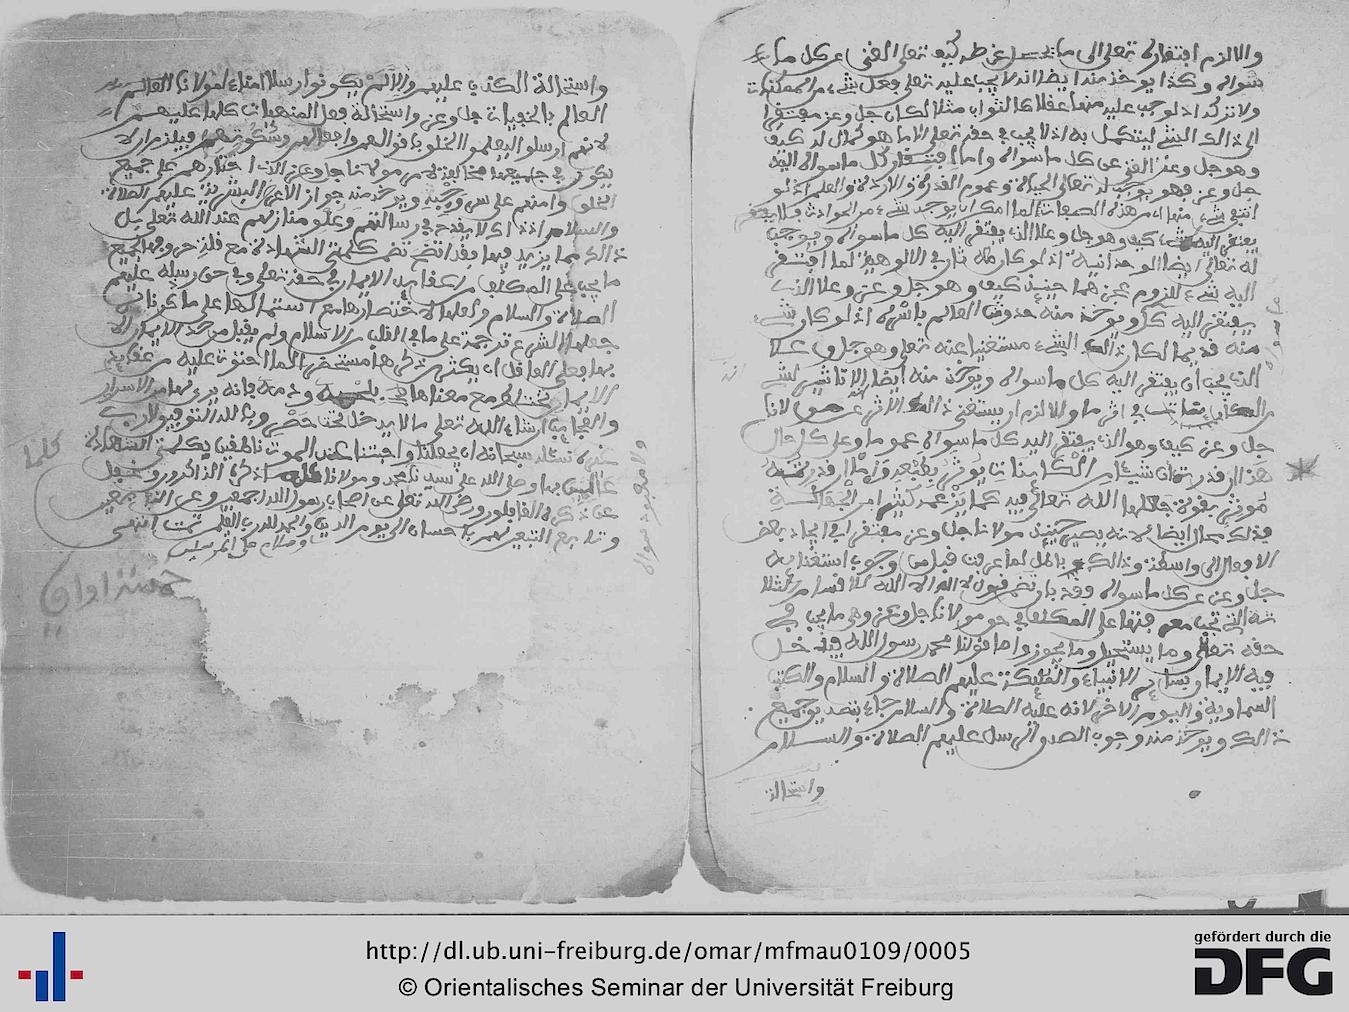 والا لزم افتقاره تعالى الى ما يحصل غرضه كيف وهو تعالى الغني عن كل ما
سواه وكذا يوخذ منه ايضا انه لا يجب عليه تعالى فعل شيء من الممكنات
ولا تركه اذ لو وجب عليه منها عقلا كالثواب مثلا لكان جل وعز مفتقرا
الى ذالك الشيء ليتكمل به اذ لا يجب في حقه تعالى الا ما هو كمال له كيف
وهو جل وعز الغني عن كل ما سواه واما افتقار كل ما سواه اليه
جل وعز فهو يوجب له تعالى الحياة وعموم القدرة والارادة والعلم اذ لو
انتفى شيء من هذه الصفات لما امكن ان يوجد شيء من الحوادث فلا يفتقر
اليه شيء كيف وهو جل وعلا الذي يفتقر اليه كل ما سواه ويوجب
له تعالى ايضا الوحدانية اذ لو كان معه ثان في الالوهية لما افتقر
اليه شيء للزوم عجزهما حينئذ كيف وهو جل وعز وعلا الذي
يفتقر اليه كل ويوخذ منه حدوث العالم باسره اذ لو كان شيء
منه قديما لكان ذالك الشيء مستغنيا عنه تعالى وهو جل وعلا
الذي يجب ان يفتقر اليه كل ما سواه ويوخذ منه ايضا ان لا تاثير لشيء
من الكائنات في اثر ما والا لزم ان يستغني ذالك الاثر عن مولانا
جل وعز كيف وهو الذي يفتقر اليه كل ما سواه عموما وعلى كل حال
هذا ان قدرت ان شيئا من الكائنات يوثر بطبعه واما ان قدرته
موثرا بقوة جعلها الله تعالى فيه كما يزعمه كثير من الجهلة
فذلك محال ايضا لانه يصير حينئذ مولانا جل وعز مفتقرا في ايجاد بعض
الافعال الى واسطة وذالك باطل لما عرفت قبل من وجوب استغنائه
جل وعز عن كل ما سواه فقد بان تضمن قول لا اله الا الله للاقسام الثلا
ثة التي تجب معرفتها على المكلف في حق مولانا جل وعز وهي ما يجب في
حقه تعالى وما يستحيل وما يجوز واما قولنا محمد رسول الله فيدخل
فيه الايمان بسائر الانبياء والملئكة عليهم الصلاة والسلام والكتب
السماوية واليوم الاخر لانه عليه الصلاة والسلام جاء بتصديق جميع
ذالك ويوخذ منه وجوب صدق الرسل عليهم الصلاة والسلام
واستحالة
واستحالة الكذب عليهم والا لم يكونوا رسلا امناء لمولانا
العالم بالخفيات جل وعز واستحالة فعل المنهيات كلها عليهم
لانهم ارسلوا ليعلموا الخلق باقوالهم وافعالهم وسكوتهم فيلزم ان لا
يكون في جميعها مخالفة لامر مولانا جل وعز الذي اختارهم على جميع
الخلق وامنهم على سر وحيه ويوخذ منه جواز الاعراض البشرية عليهم الصلاة
والسلام اذ ذاك لا يقدح في رسالتهم وعلو منازلهم عند الله تعالى بل
ذالك مما يزيد فيها فقد اتضح تضمن كلمتي الشهادة مع قلة حروفها لجميع
ما يجب على المكلف من عقائد الايمان في حقه تعالى وفي حق رسله عليهم
الصلاة والسلام ولعلها لاختصارها مع اشتمالها على ما ذكرناه
جعلها الشرع ترجمة على ما في القلب من الاسلام ولم يقبل من احد الايمان الا
بها فعلى العاقل ان يكثر من ذكرها مستحضرا لما احتوت عليه من عقائد
الايمان حتى تمتزج مع معناها بلحمه ودمه فانه يرى لها من الاسرار
والعجائب ان شاء الله تعالى ما لا يدخل تحت حصر وبالله التوفيق لا رب
غيره نسئله سبحانه ان يجعلنا واحبتنا عند الموت ناطقين بكلمتي الشهادة
عالمين بها وصلى الله على سيدنا محمد ومولانا كلما ذكره الذاكرون وغفل
عن ذكره الغافلون ورضي الله تعالى عن اصحاب رسول الله اجمعين وعن التابعين
وتابع التبعين لهم باحسان الى يوم الدين والحمد لله رب العلمين انتهى
وسلام على المرسلين
ولا معبود سواه
كلما
http://dl.ub.uni-freiburg.de/omar/mfmau0109/0005
© Orientalisches Seminar der Universität Freiburg
gefördert durch die
DFG